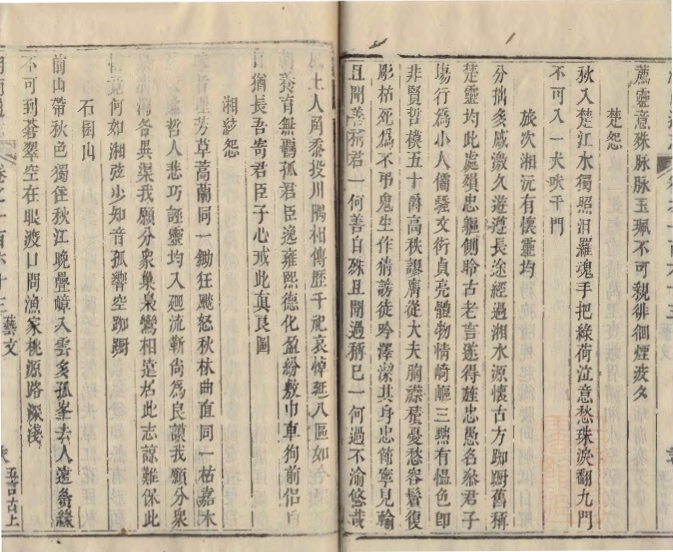 薦靈意殊脉脉玉珮不可親徘徊煙波久
楚怨
秋入楚江水獨照汨羅魂手把綠荷泣意愁珠淚翻九門
不可入一犬吠千門
旅次湘沅有懷靈均
分拙多感激久遊遵長途經過湘水源懷古方踟躕舊稱
楚靈均此處殞忠軀側聆古老言遂得旌忠愚名參君子
場行為小人儒騷文衒貞亮體物情崎嶇三黜有慍色即
非賢哲模五十爵高秩謬膺從大夫胸襟積憂愁容鬢復
彫枯死為不弔鬼生作猜謗徒吟澤潔其身忠節寧見輸
且聞善稱君一何善自殊且聞過稱己一何過不渝悠哉
土人角黍投川隅相傳歷千祀哀悼延八區如今
養育無鸎孤君臣逸雍熙德化盈紛敷巾車徇前侶自
日猶長吾寄君臣子心戒此真良圖
湘絃怨
者理芳草蒿蘭同一鋤狂飈怒秋林曲直同一枯嘉木
蠹哲人悲巧誣靈均入廻流靳尚為良謨我願分眾
濁各異渠我願分眾巢梟鸞相遠居此志諒難保此
情竟何如湘弦少知音孤響空踟躕
石囷山
前山帶秋色獨往秋江晚疊嶂入雲多孤峯去人遠夤緣
不可到蒼翠空在眼渡口問漁家桃源路深淺
卷之一百六十三 藝文 五言古上